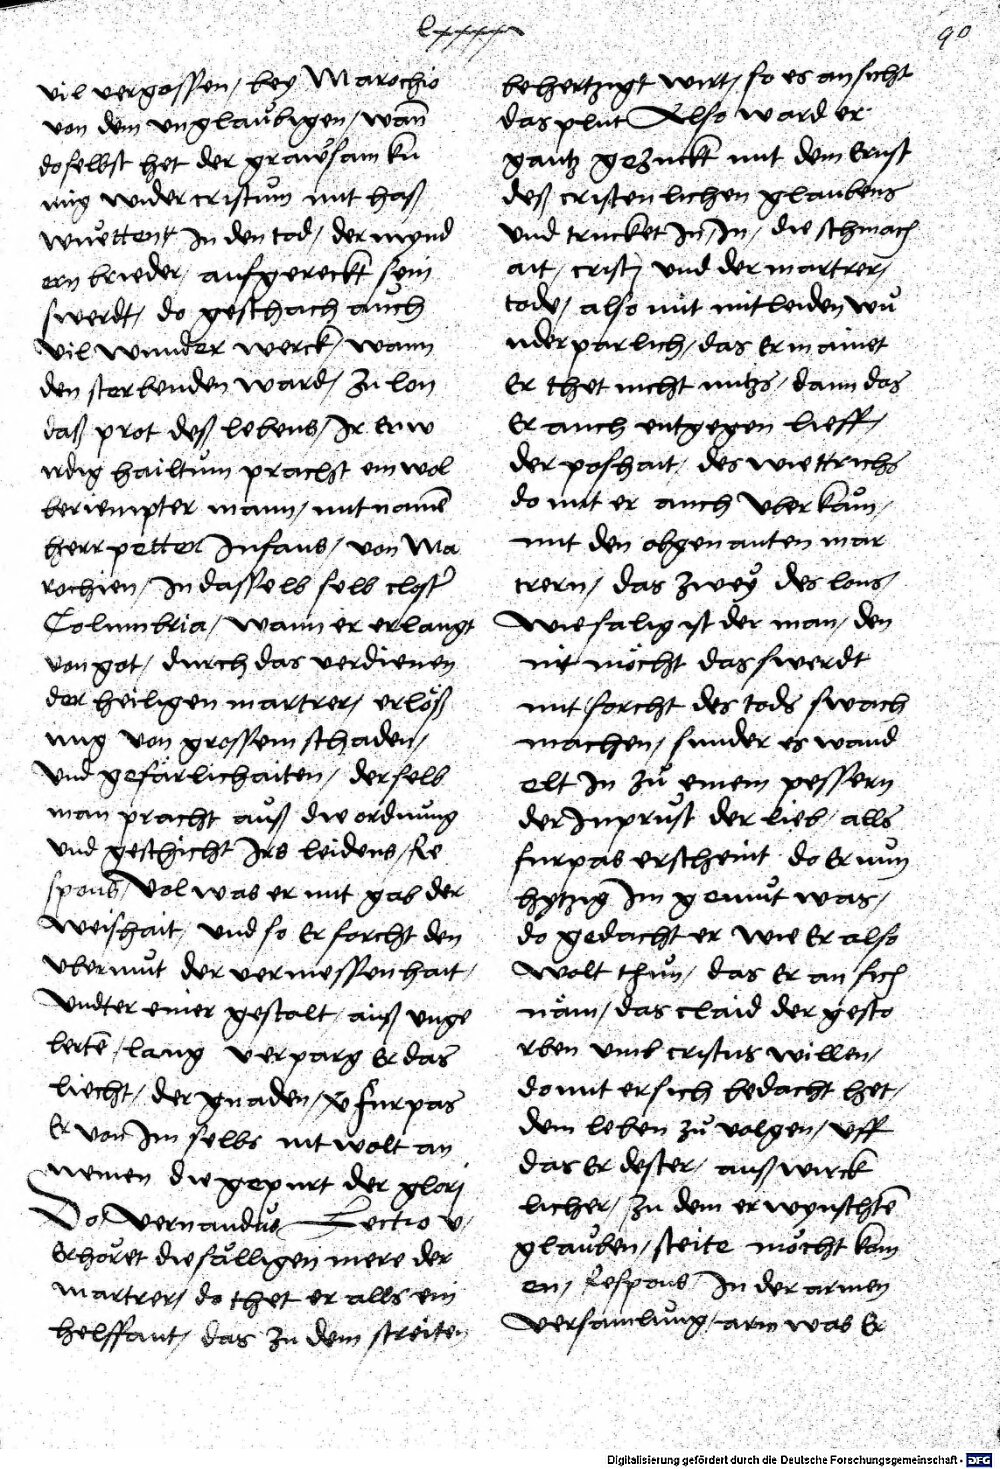 lxxxx
90
vil vergossen / bey Marochio
von dem vnglaubigen / wan̄
doselbst het der grawsam ku
nig wider cristum mit haß
wuettent In den tod / der mynd
ern brieder / aufgereckt sein
swerdt / do geschach auch
vil wunder werck / wann
den sterbenden ward / zu lon
daß prot deß lebens / Ir erw
irdig hailtum prachst ein wol
beriempter mann / mit namē
herr petter Infans / von Ma
rochien / In dasselb selb closter
Columbria / wann er erlangt
von got / durch das verdienen
der heiligen martrer / erlöß
ung von grossem schaden /
vnd gefärlichaiten / derselb
man pracht auß die ordnung
vnd geschicht Irs leidens / Re
spons / Vol was er mit gab der
weishait / vnd so Er forcht den
vbermut der vermessenhait /
vndter einer gestalt / auß vnge
lertē / lang verparg Er das
liecht / der gnaden / fürpas
Er von Im selbs nit wolt an
nemen die gepurt der glorj
Do vernandus Lectio v /
Erhöret die fälligen mere der
martrer / do thet er alls ein
helffant / das zu dem streiten
behertzigt wirt / so es ansicht
das plut Also ward er
gantz gezuckt mit dem Ernst
deß cristenlichen glaubens
vnd trucket In / In / die schmach
ait / cristj vnd der martrer /
tode / also mit mitleiden wu
nderparlich / das Er mainet
Er thet nicht nutzs / dann das
Er auch entgegen lieff /
der poshait / des wiettrichs
do mit er auch vberkam /
mit den obgenanten mar
trern / das zwey des lons /
Wie salig ist der man / den
nit möcht das swerdt
mit forcht des tods swach
machen / sunder es wand
elt In zu einem pessern
der Inprust der lieb / alls
furpas erscheint do Er nun
hytzig Im gemut was /
do gedacht er wie Er also
wolt thun / das Er an sich
näm / das claid der gesto
rben vmb cristus willen /
domit er sich bedacht het /
dem leben zu volgen / vff
das Er dester / auß wirck
licher / zu dem erwynschtē
glauben / steite möcht kom
en / Respons In der armen
versamlung / arm was Er
Digitalisierung gefördert durch die Deutsche Forschungsgemeinschaft - DFG